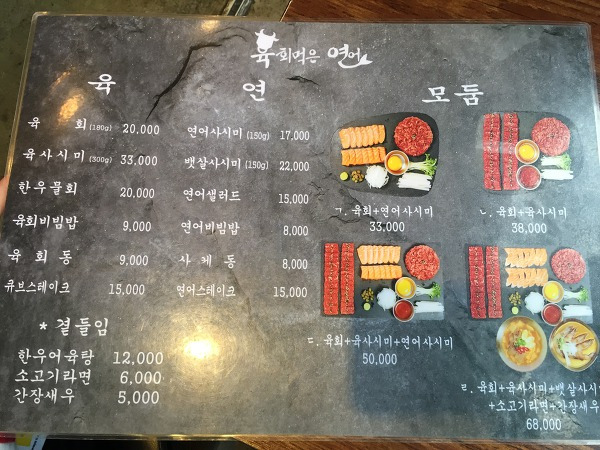 육회먹은 연어
육 연 모둠
육 회 (180g) 20,000
육사시미 (300g) 33,000
한우물회 20,000
육회비빔밥 9,000
육 회 동 9,000
큐브스테이크 15,000
* 곁들임
한우어육탕 12,000
소고기라면 6,000
간장새우 5,000
연어사시미 (150g) 17,000
뱃살사시미 (150g) 22,000
연어샐러드 15,000
연어비빔밥 8,000
사케동 8,000
연어스테이크 15,000
ㄱ. 육회+연어사시미
33,000
ㄴ. 육회+육사시미
38,000
ㄷ. 육회+육사시미+연어사시미
50,000
ㄹ. 육회+육사시미+뱃살사시미
+소고기라면+간장새우
68,000